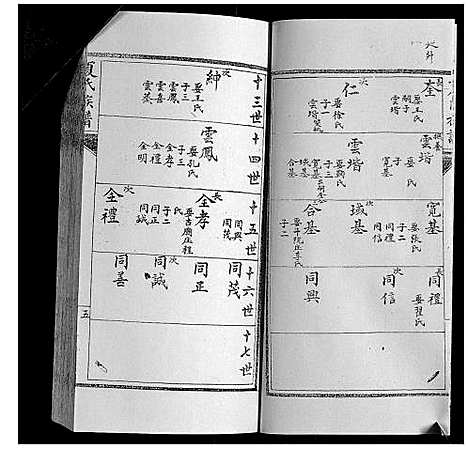 荃
娶王氏
嗣子
雲堦
次
仁
娶徐氏
子二
雲堦
雲堦
娶氏
子
寬基
雲堦
娶鞠氏
子三
寬基
域基
合基
寬基
娶張氏
子二
同禮
同信
次
域基
合基
子二
長
同禮
娶翟氏
次
同信
同興
夏氏族譜
五
十三世
十四世
十五世
十六世
十七世
次
紳
娶王氏
子三
雲鳳
雲喜
雲慕
雲鳳
娶孔氏
子三
全孝
全禮
全明
同興
同茂
長
全孝
娶古廟庄程
氏
子二
同正
同誠
次
全禮
同茂
同正
次
同誠
同善